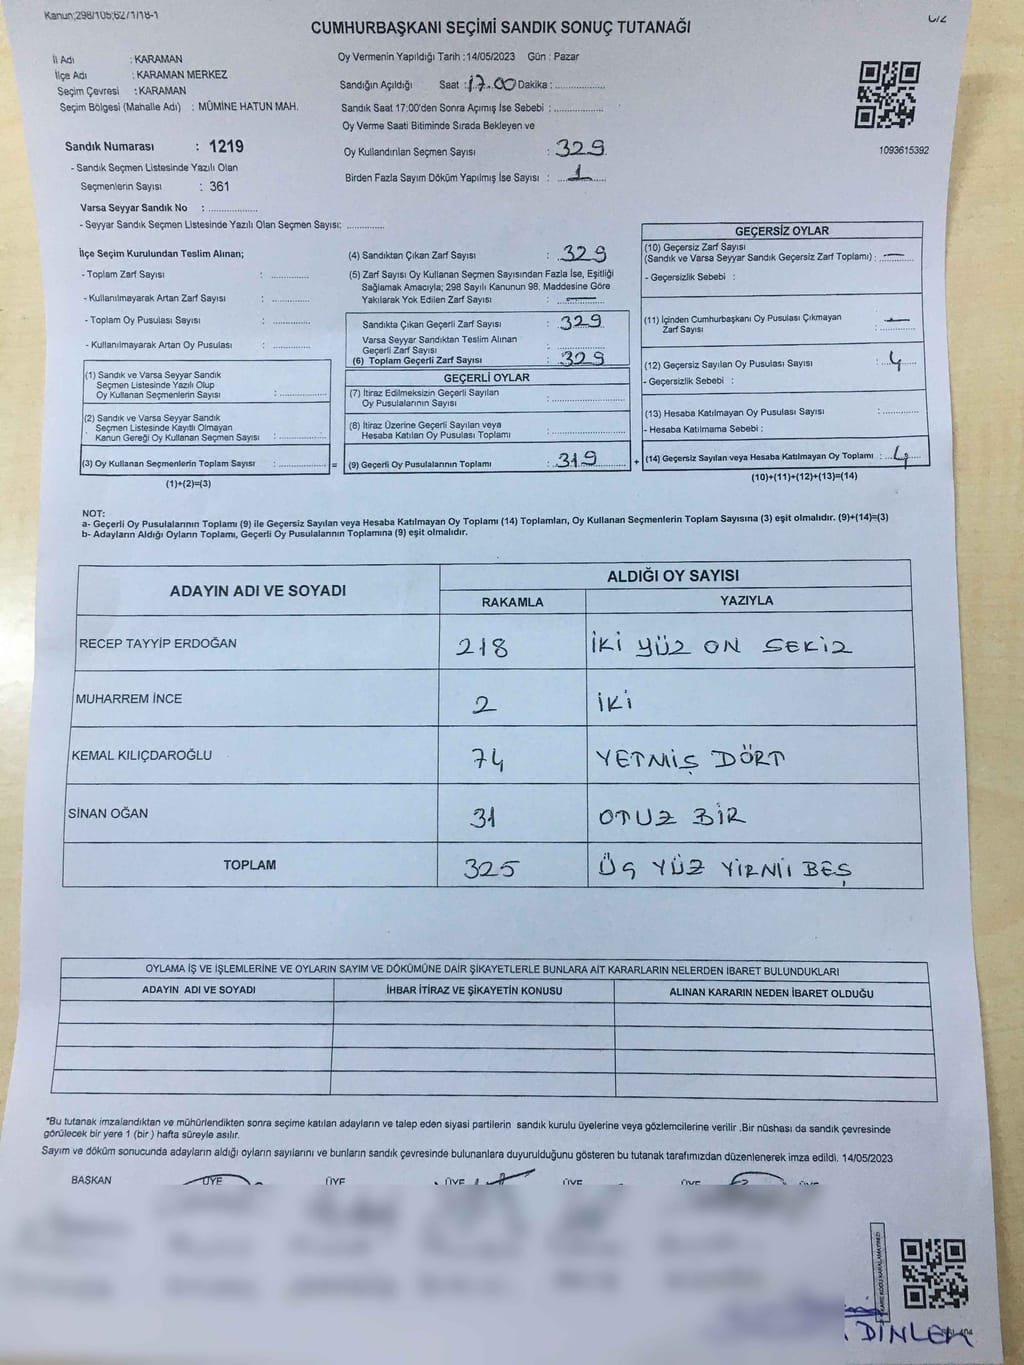 Kanun:298/105;62/1/18-1
CUMHURBAŞKANI SEÇİMİ SANDIK SONUÇ TUTANAĞI
İl Adı : KARAMAN
İlçe Adı : KARAMAN MERKEZ
Seçim Çevresi : KARAMAN
Seçim Bölgesi (Mahalle Adı) : MÜMİNE HATUN MAH.
Oy Vermenin Yapıldığı Tarih :14/05/2023 Gün : Pazar
Sandığın Açıldığı Saat :17.00 Dakika :..............
Sandık Saat 17:00'den Sonra Açımış İse Sebebi :..............
Oy Verme Saati Bitiminde Sırada Bekleyen ve
Oy Kullandırılan Seçmen Sayısı : 329
Birden Fazla Sayım Döküm Yapılmış İse Sayısı : 1
1093615392
Sandık Numarası : 1219
- Sandık Seçmen Listesinde Yazılı Olan
Seçmenlerin Sayısı : 361
Varsa Seyyar Sandık No : ..............
- Seyyar Sandık Seçmen Listesinde Yazılı Olan Seçmen Sayısı: ..............
İlçe Seçim Kurulundan Teslim Alınan;
- Toplam Zarf Sayısı : ..............
- Kullanılmayarak Artan Zarf Sayısı : ..............
- Toplam Oy Pusulası Sayısı : ..............
- Kullanılmayarak Artan Oy Pusulası : ..............
(1) Sandık ve Varsa Seyyar Sandık
Seçmen Listesinde Yazılı Olup
Oy Kullanan Seçmenlerin Sayısı : ..............
(2) Sandık ve Varsa Seyyar Sandık
Seçmen Listesinde Kayıtlı Olmayan
Kanun Gereği Oy Kullanan Seçmen Sayısı : ..............
(3) Oy Kullanan Seçmenlerin Toplam Sayısı : .............. =
(1)+(2)=(3)
(4) Sandıktan Çıkan Zarf Sayısı : 329
(5) Zarf Sayısı Oy Kullanan Seçmen Sayısından Fazla İse, Eşitliği
Sağlamak Amacıyla; 298 Sayılı Kanunun 98. Maddesine Göre
Yakılarak Yok Edilen Zarf Sayısı : —
Sandıkta Çıkan Geçerli Zarf Sayısı : 329
Varsa Seyyar Sandıktan Teslim Alınan
Geçerli Zarf Sayısı : ..............
(6) Toplam Geçerli Zarf Sayısı : 329
GEÇERLİ OYLAR
(7) İtiraz Edilmeksizin Geçerli Sayılan
Oy Pusulalarının Sayısı : ..............
(8) İtiraz Üzerine Geçerli Sayılan veya
Hesaba Katılan Oy Pusulası Toplamı : ..............
(9) Geçerli Oy Pusulalarının Toplamı : 319 +
GEÇERSİZ OYLAR
(10) Geçersiz Zarf Sayısı
(Sandık ve Varsa Seyyar Sandık Geçersiz Zarf Toplamı) : —
- Geçersizlik Sebebi :
(11) İçinden Cumhurbaşkanı Oy Pusulası Çıkmayan
Zarf Sayısı : —
(12) Geçersiz Sayılan Oy Pusulası Sayısı : 4
- Geçersizlik Sebebi :
(13) Hesaba Katılmayan Oy Pusulası Sayısı : ..............
- Hesaba Katılmama Sebebi :
(14) Geçersiz Sayılan veya Hesaba Katılmayan Oy Toplamı : 4
(10)+(11)+(12)+(13)=(14)
NOT:
a- Geçerli Oy Pusulalarının Toplamı (9) ile Geçersiz Sayılan veya Hesaba Katılmayan Oy Toplamı (14) Toplamları, Oy Kullanan Seçmenlerin Toplam Sayısına (3) eşit olmalıdır. (9)+(14)=(3)
b- Adayların Aldığı Oyların Toplamı, Geçerli Oy Pusulalarının Toplamına (9) eşit olmalıdır.
ADAYIN ADI VE SOYADI ALDIĞI OY SAYISI
RAKAMLA YAZIYLA
RECEP TAYYİP ERDOĞAN 218 İKİ YÜZ ON SEKİZ
MUHARREM İNCE 2 İKİ
KEMAL KILIÇDAROĞLU 74 YETMİŞ DÖRT
SİNAN OĞAN 31 OTUZ BİR
TOPLAM 325 ÜÇ YÜZ YİRMİ BEŞ
OYLAMA İŞ VE İŞLEMLERİNE VE OYLARIN SAYIM VE DÖKÜMÜNE DAİR ŞİKAYETLERLE BUNLARA AİT KARARLARIN NELERDEN İBARET BULUNDUKLARI
ADAYIN ADI VE SOYADI İHBAR İTİRAZ VE ŞİKAYETİN KONUSU ALINAN KARARIN NEDEN İBARET OLDUĞU
*Bu tutanak imzalandıktan ve mühürlendikten sonra seçime katılan adayların ve talep eden siyasi partilerin sandık kurulu üyelerine veya gözlemcilerine verilir .Bir nüshası da sandık çevresinde
görülecek bir yere 1 (bir ) hafta süreyle asılır.
Sayım ve döküm sonucunda adayların aldığı oyların sayılarını ve bunların sandık çevresinde bulunanlara duyurulduğunu gösteren bu tutanak tarafımızdan düzenlenerek imza edildi. 14/05/2023
BAŞKAN ÜYE ÜYE ÜYE ÜYE ÜYE ÜYE
DİNLEK